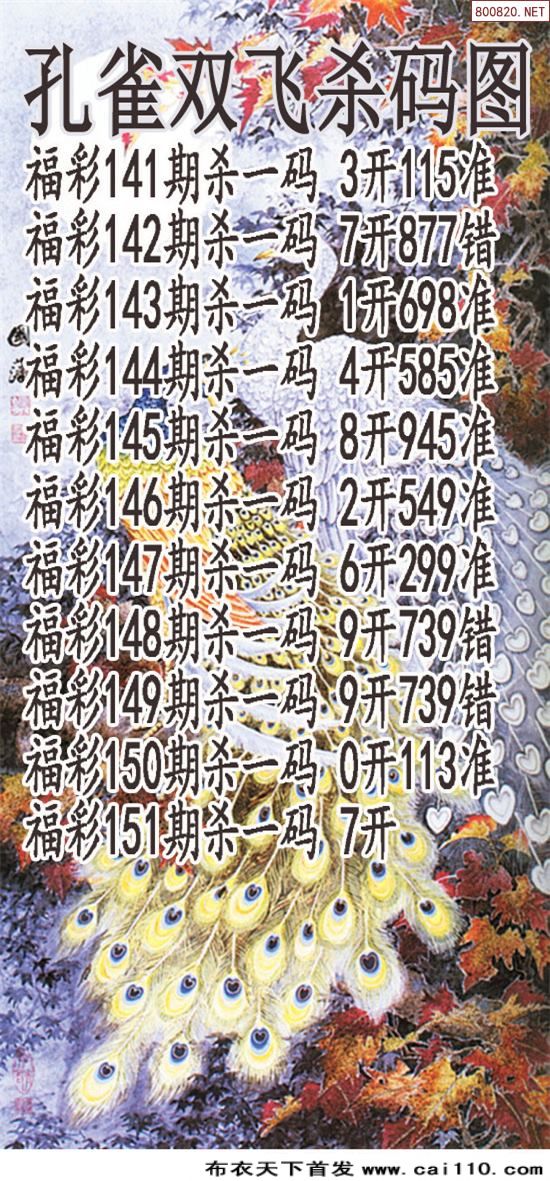 800820.NET
孔雀双飞杀码图
福彩141期杀一码 3开115准
福彩142期杀一码 7开877错
福彩143期杀一码 1开698准
福彩144期杀一码 4开585准
福彩145期杀一码 8开945准
福彩146期杀一码 2开549准
福彩147期杀一码 6开299准
福彩148期杀一码 9开739错
福彩149期杀一码 9开739错
福彩150期杀一码 0开113准
福彩151期杀一码 7开
布衣天下首发 www.cai110.com